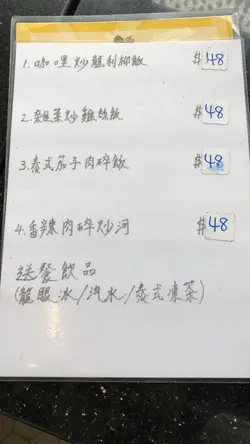 1.咖哩炒龍利柳飯 $48
2.雜菜炒雞絲飯 $48
3.泰式茄子肉碎飯 $48
4.香辣肉碎炒河 $48
送餐飲品
(龍眼冰/汽水/泰式凍茶)